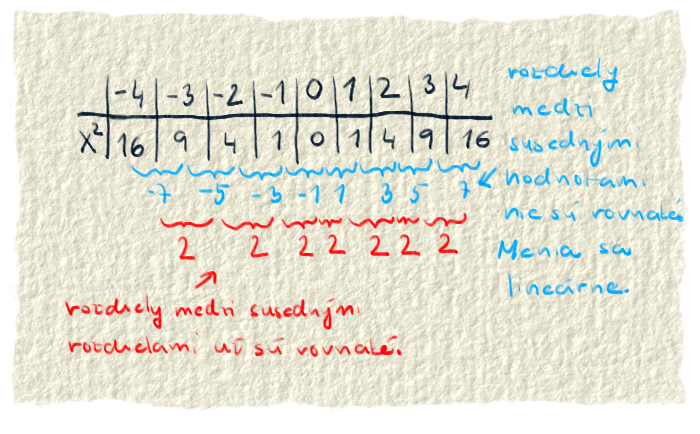 -4 -3 -2 -1 0 1 2 3 4
x² 16 9 4 1 0 1 4 9 16
-7 -5 -3 -1 1 3 5 7
2 2 2 2 2 2 2
rozdiely
medzi
susednými
hodnotami
nie sú rovnaké.
Menia sa
lineárne.
rozdiely medzi susednými
rozdielami už sú rovnaké.